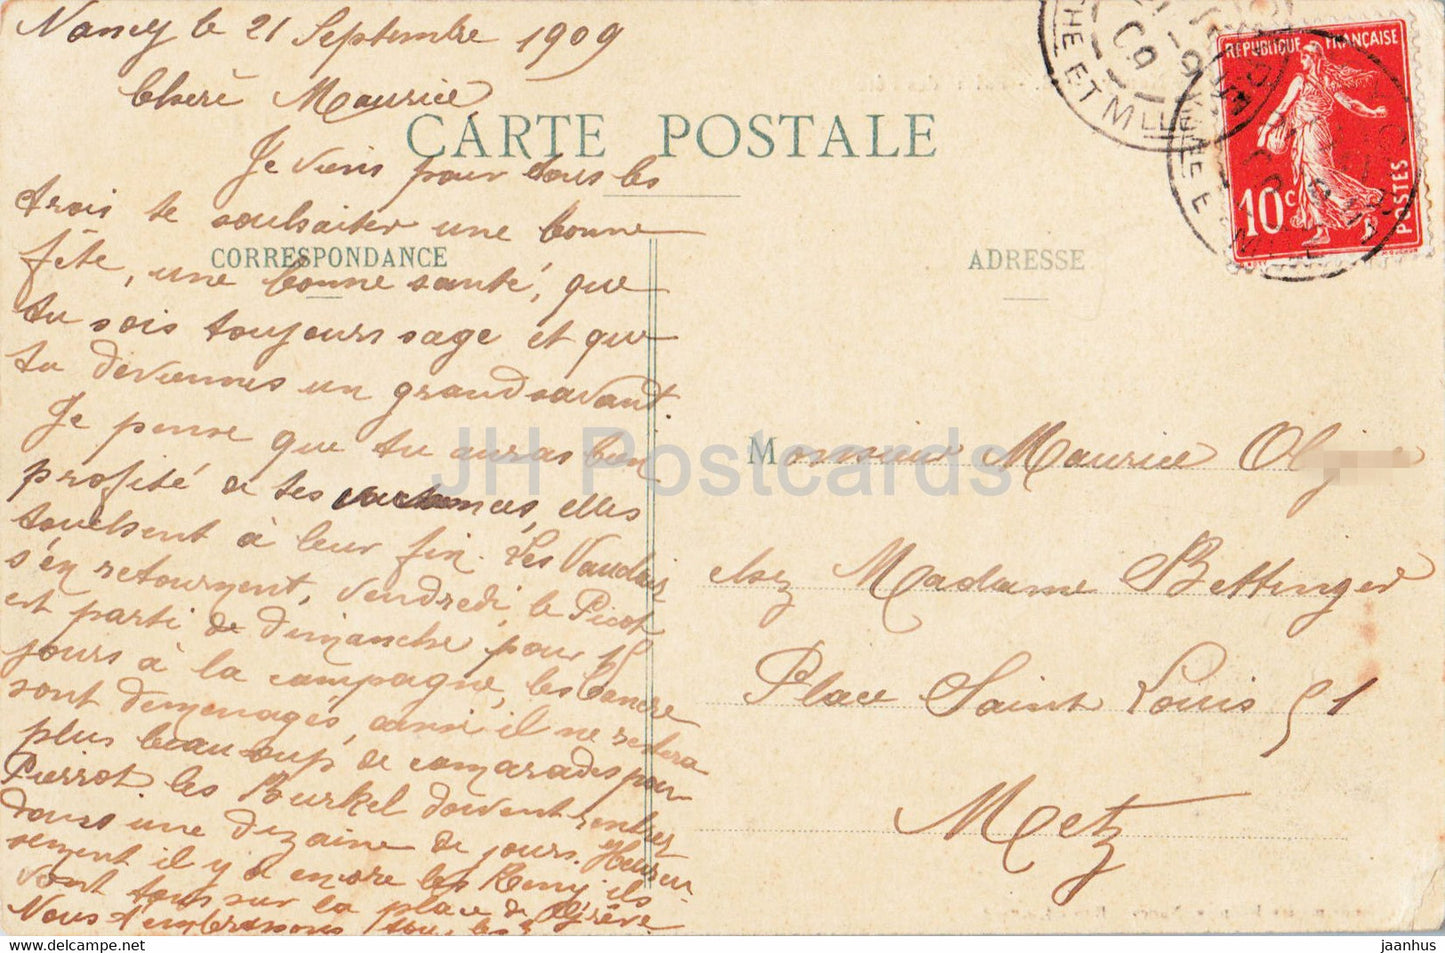 Nancy le 21 Septembre 1909
Cheré Maurice
CARTE POSTALE
Je viens pour tous les
trois te souhaiter une bonne
fête, une bonne santé, que
tu sois toujours sage et que
tu deviennes un grand savant.
Je pense que tu auras bien
profité de tes vacances, elles
touchent à leur fin. Les Vaudois
s'en retournent, vendredi, le Picot
est parti de dimanche pour 15
jours à la campagne, les
sont demenagés, ainsi il ne restera
plus beaucoup de camarades pour
Pierrot les Burkel doivent rentrer
dans une dizaine de jours. Heureu
sement il y a encore les Remy ils
vont tous sur la place de Grève.
Nous t'embrassons tou, les 3
CORRESPONDANCE
ADRESSE
REPUBLIQUE FRANÇAISE
10c
POSTES
HE ET M
09
Monsieur Maurice Ol
chez Madame Bettinger
Place Saint Louis 51
Metz
JH Postcards
www.delcampe.net
jaanhus